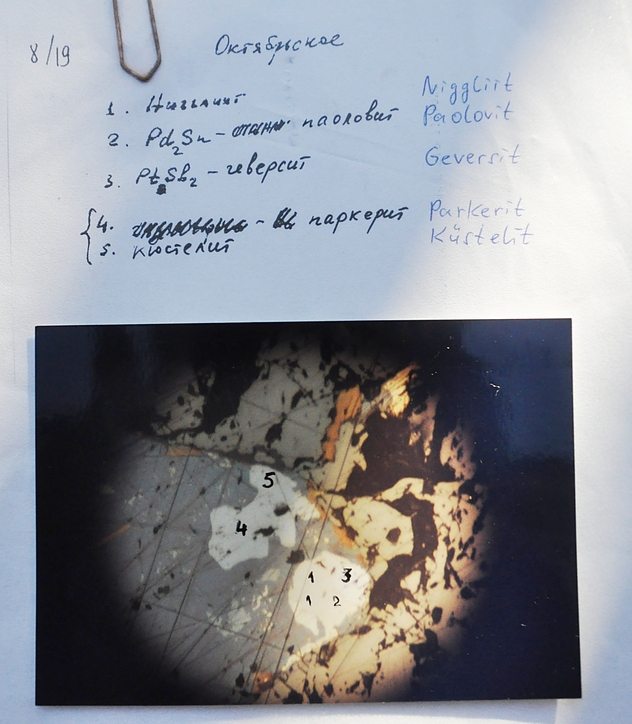 8/19
Октябрьское
1. Нигглиит Nigglïit
2. Pd2Sn - паоловит Paolovit
3. PtSb2 - геверсит Geversit
4. - паркерит Parkerit
5. кюстелит Küstelit
5
4
1 3
1 2